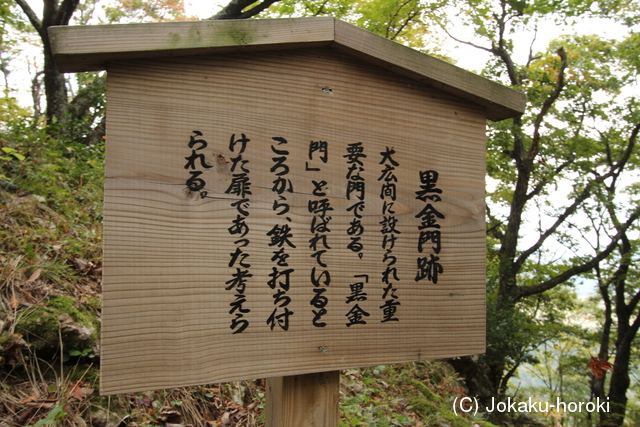 黒金門跡
大広間に設けられた重
要な門である。「黒金
門」と呼ばれていると
ころから、鉄を打ち付
けた扉であった考えら
られる。
(C)Jokaku-horoki